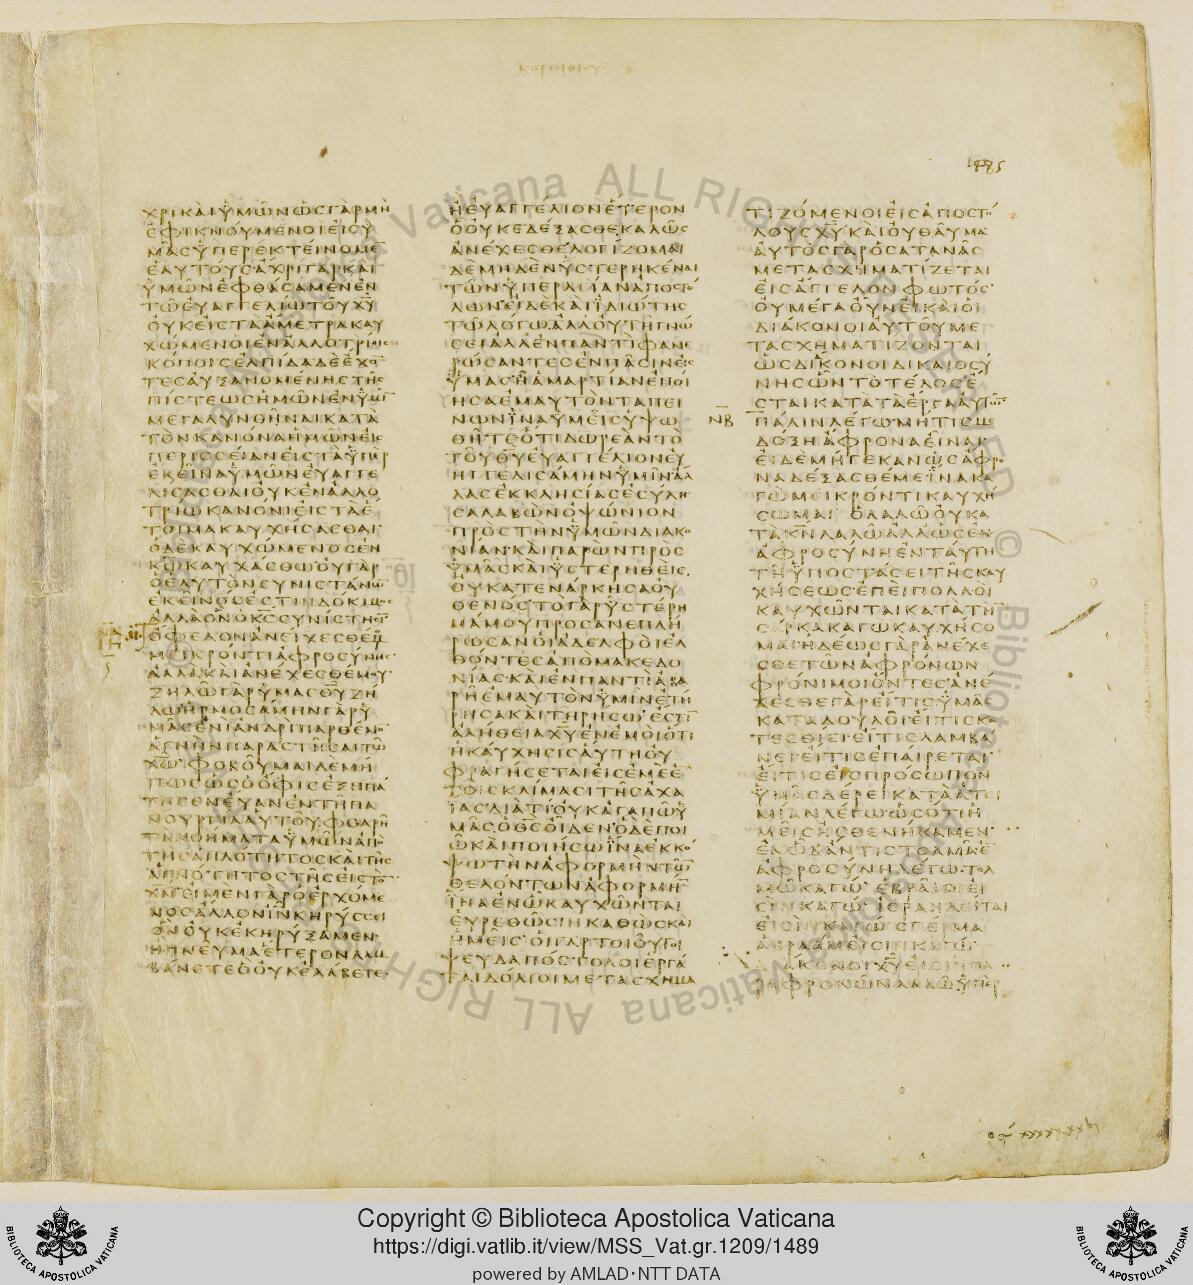 ΧΡΙΚΑΙΥΜΩΝΩΣΓΑΡΜΗ
ΕΦΙΚΝΟΥΜΕΝΟΙΕΙΣΥ
ΜΑΣΥΠΕΡΕΚΤΕΙΝΟΜΕ̅
ΕΑΥΤΟΥΣΑΧΡΙΓΑΡΚΑΙ
ΥΜΩΝΕΦΘΑΣΑΜΕΝΕΝ
ΤΩΕΥΑΓΓΕΛΙΩΤΟΥΧ̅Υ̅
ΟΥΚΕΙΣΤΑΑΜΕΤΡΑΚΑΥ
ΧΩΜΕΝΟΙΕΝΑΛΛΟΤΡΙΟΙΣ
ΚΟΠΟΙΣΕΛΠΙΔΑΔΕΕΧΟ̅
ΤΕΣΑΥΞΑΝΟΜΕΝΗΣΤΗΣ
ΠΙΣΤΕΩΣΗΜΩΝΕΝΥΜΙ̅
ΜΕΓΑΛΥΝΘΗΝΑΙΚΑΤΑ
ΤΟΝΚΑΝΟΝΑΗΜΩΝΕΙΣ
ΠΕΡΙΣΣΕΙΑΝΕΙΣΤΑΥΠΕΡ
ΕΚΕΙΝΑΥΜΩΝΕΥΑΓΓΕ
ΛΙΣΑΣΘΑΙΟΥΚΕΝΑΛΛΟ
ΤΡΙΩΚΑΝΟΝΙΕΙΣΤΑΕ
ΤΟΙΜΑΚΑΥΧΗΣΑΣΘΑΙ
ΟΔΕΚΑΥΧΩΜΕΝΟΣΕΝ
Κ̅Ω̅ΚΑΥΧΑΣΘΩΟΥΓΑΡ
ΟΕΑΥΤΟΝΣΥΝΙΣΤΑΝΩ̅
ΕΚΕΙΝΟΣΕΣΤΙΝΔΟΚΙΜΟΣ
ΑΛΛΑΟΝΟΚ̅Σ̅ΣΥΝΙΣΤΗΣΙ̅
ΟΦΕΛΟΝΑΝΕΙΧΕΣΘΕΜΟΥ
ΜΕΙΚΡΟΝΤΙΑΦΡΟΣΥΝΗΣ
ΑΛΛΑΚΑΙΑΝΕΧΕΣΘΕΜΟΥ
ΖΗΛΩΓΑΡΥΜΑΣΘ̅Υ̅ΖΗ
ΛΩΗΡΜΟΣΑΜΗΝΓΑΡΥ
ΜΑΣΕΝΙΑΝΔΡΙΠΑΡΘΕΝΟ̅
ΑΓΝΗΝΠΑΡΑΣΤΗΣΑΙΤΩ
Χ̅Ω̅ΦΟΒΟΥΜΑΙΔΕΜΗ
ΠΩΣΩΣΟΟΦΙΣΕΞΗΠΑ
ΤΗΣΕΝΕΥΑΝΕΝΤΗΠΑ
ΝΟΥΡΓΙΑΑΥΤΟΥΦΘΑΡΗ
ΤΑΝΟΗΜΑΤΑΥΜΩΝΑΠΟ
ΤΗΣΑΠΛΟΤΗΤΟΣΚΑΙΤΗΣ
ΑΓΝΟΤΗΤΟΣΤΗΣΕΙΣΤΟ̅
Χ̅Ν̅ΕΙΜΕΝΓΑΡΟΕΡΧΟΜΕ
ΝΟΣΑΛΛΟΝΙ̅Ν̅ΚΗΡΥΣΣΕΙ
ΟΝΟΥΚΕΚΗΡΥΞΑΜΕΝ
ΗΠΝΕΥΜΑΕΤΕΡΟΝΛΑΜ
ΒΑΝΕΤΕΟΟΥΚΕΛΑΒΕΤΕ
ΗΕΥΑΓΓΕΛΙΟΝΕΤΕΡΟΝ
ΟΟΥΚΕΔΕΞΑΣΘΕΚΑΛΩΣ
ΑΝΕΧΕΣΘΕΛΟΓΙΖΟΜΑΙ
ΔΕΜΗΔΕΝΥΣΤΕΡΗΚΕΝΑΙ
ΤΩΝΥΠΕΡΛΙΑΝΑΠΟΣΤΟ
ΛΩΝΕΙΔΕΚΑΙΙΔΙΩΤΗΣ
ΤΩΛΟΓΩΑΛΛΟΥΤΗΓΝΩ
ΣΕΙΑΛΛΕΝΠΑΝΤΙΦΑΝΕ
ΡΩΣΑΝΤΕΣΕΝΠΑΣΙΝΕΙΣ
ΥΜΑΣΗΑΜΑΡΤΙΑΝΕΠΟΙ
ΗΣΑΕΜΑΥΤΟΝΤΑΠΕΙ
ΝΩΝΙΝΑΥΜΕΙΣΥΨΩ
ΘΗΤΕΟΤΙΔΩΡΕΑΝΤΟ
ΤΟΥΘ̅Υ̅ΕΥΑΓΓΕΛΙΟΝΕΥ
ΗΓΓΕΛΙΣΑΜΗΝΥΜΙΝΑΛ
ΛΑΣΕΚΚΛΗΣΙΑΣΕΣΥΛΗ
ΣΑΛΑΒΩΝΟΨΩΝΙΟΝ
ΠΡΟΣΤΗΝΥΜΩΝΔΙΑΚΟ
ΝΙΑΝΚΑΙΠΑΡΩΝΠΡΟΣ
ΥΜΑΣΚΑΙΥΣΤΕΡΗΘΕΙΣ
ΟΥΚΑΤΕΝΑΡΚΗΣΑΟΥ
ΘΕΝΟΣΤΟΓΑΡΥΣΤΕΡΗ
ΜΑΜΟΥΠΡΟΣΑΝΕΠΛΗ
ΡΩΣΑΝΟΙΑΔΕΛΦΟΙΕΛ
ΘΟΝΤΕΣΑΠΟΜΑΚΕΔΟ
ΝΙΑΣΚΑΙΕΝΠΑΝΤΙΑΒΑ
ΡΗΕΜΑΥΤΟΝΥΜΙΝΕΤΗ
ΡΗΣΑΚΑΙΤΗΡΗΣΩΕΣΤΙ̅
ΑΛΗΘΕΙΑΧ̅Υ̅ΕΝΕΜΟΙΟΤΙ
ΗΚΑΥΧΗΣΙΣΑΥΤΗΟΥ
ΦΡΑΓΗΣΕΤΑΙΕΙΣΕΜΕΕ̅
ΤΟΙΣΚΛΙΜΑΣΙΤΗΣΑΧΑ
ΙΑΣΔΙΑΤΙΟΥΚΑΓΑΠΩΥ
ΜΑΣΟΘ̅Σ̅ΟΙΔΕΝΟΔΕΠΟΙ
ΩΚΑΙΠΟΙΗΣΩΙΝΑΕΚΚΟ
ΨΩΤΗΝΑΦΟΡΜΗΝΤΩ̅
ΘΕΛΟΝΤΩΝΑΦΟΡΜΗ̅
ΙΝΑΕΝΩΚΑΥΧΩΝΤΑΙ
ΕΥΡΕΘΩΣΙΝΚΑΘΩΣΚΑΙ
ΗΜΕΙΣΟΙΓΑΡΤΟΙΟΥΤΟΙ
ΨΕΥΔΑΠΟΣΤΟΛΟΙΕΡΓΑ
ΤΑΙΔΟΛΙΟΙΜΕΤΑΣΧΗΜΑ
ΤΙΖΟΜΕΝΟΙΕΙΣΑΠΟΣΤΟ
ΛΟΥΣΧ̅Υ̅ΚΑΙΟΥΘΑΥΜΑ
ΑΥΤΟΣΓΑΡΟΣΑΤΑΝΑΣ
ΜΕΤΑΣΧΗΜΑΤΙΖΕΤΑΙ
ΕΙΣΑΓΓΕΛΟΝΦΩΤΟΣ
ΟΥΜΕΓΑΟΥΝΕΙΚΑΙΟΙ
ΔΙΑΚΟΝΟΙΑΥΤΟΥΜΕ
ΤΑΣΧΗΜΑΤΙΖΟΝΤΑΙ
ΩΣΔΙΑΚΟΝΟΙΔΙΚΑΙΟΣΥ
ΝΗΣΩΝΤΟΤΕΛΟΣΕ
ΣΤΑΙΚΑΤΑΤΑΕΡΓΑΑΥΤΩ̅
Ν̅Β̅ ΠΑΛΙΝΛΕΓΩΜΗΤΙΣΜΕ
ΔΟΞΗΑΦΡΟΝΑΕΙΝΑΙ
ΕΙΔΕΜΗΓΕΚΑΝΩΣΑΦΡΟ
ΝΑΔΕΞΑΣΘΕΜΕΙΝΑΚΑ
ΓΩΜΕΙΚΡΟΝΤΙΚΑΥΧΗ
ΣΩΜΑΙΟΛΑΛΩΟΥΚΑ
ΤΑΚ̅Ν̅ΛΑΛΩΑΛΛΩΣΕΝ
ΑΦΡΟΣΥΝΗΕΝΤΑΥΤΗ
ΤΗΥΠΟΣΤΑΣΕΙΤΗΣΚΑΥ
ΧΗΣΕΩΣΕΠΕΙΠΟΛΛΟΙ
ΚΑΥΧΩΝΤΑΙΚΑΤΑΤΗ̅
ΣΑΡΚΑΚΑΓΩΚΑΥΧΗΣΟ
ΜΑΙΗΔΕΩΣΓΑΡΑΝΕΧΕ
ΣΘΕΤΩΝΑΦΡΟΝΩΝ
ΦΡΟΝΙΜΟΙΟΝΤΕΣΑΝΕ
ΧΕΣΘΕΓΑΡΕΙΤΙΣΥΜΑΣ
ΚΑΤΑΔΟΥΛΟΙΕΙΤΙΣΚΑ
ΤΕΣΘΙΕΙΕΙΤΙΣΛΑΜΒΑ
ΝΕΙΕΙΤΙΣΕΠΑΙΡΕΤΑΙ
ΕΙΤΙΣΕΙΣΠΡΟΣΩΠΟΝ
ΥΜΑΣΔΕΡΕΙΚΑΤΑΑΤΙ
ΜΙΑΝΛΕΓΩΩΣΟΤΙΗ
ΜΕΙΣΗΣΘΕΝΗΚΑΜΕΝ
ΕΝΩΔΑΝΤΙΣΤΟΛΜΑΕ̅
ΑΦΡΟΣΥΝΗΛΕΓΩΤΟΛ
ΜΩΚΑΓΩΕΒΡΑΙΟΙΕΙ
ΣΙΝΚΑΓΩΙΣΡΑΗΛΕΙΤΑΙ
ΕΙΣΙΝΚΑΓΩΣΠΕΡΜΑ
ΑΒΡΑΑΜΕΙΣΙΝΚΑΓΩ
ΔΙΑΚΟΝΟΙΧ̅Υ̅ΕΙΣΙΝΠΑ
ΡΑΦΡΟΝΩΝΛΑΛΩΥΠΕΡ
Copyright © Biblioteca Apostolica Vaticana
https://digi.vatlib.it/view/MSS_Vat.gr.1209/1489
powered by AMLAD·NTT DATA
BIBLIOTECA APOSTOLICA VATICANA
BIBLIOTECA APOSTOLICA VATICANA